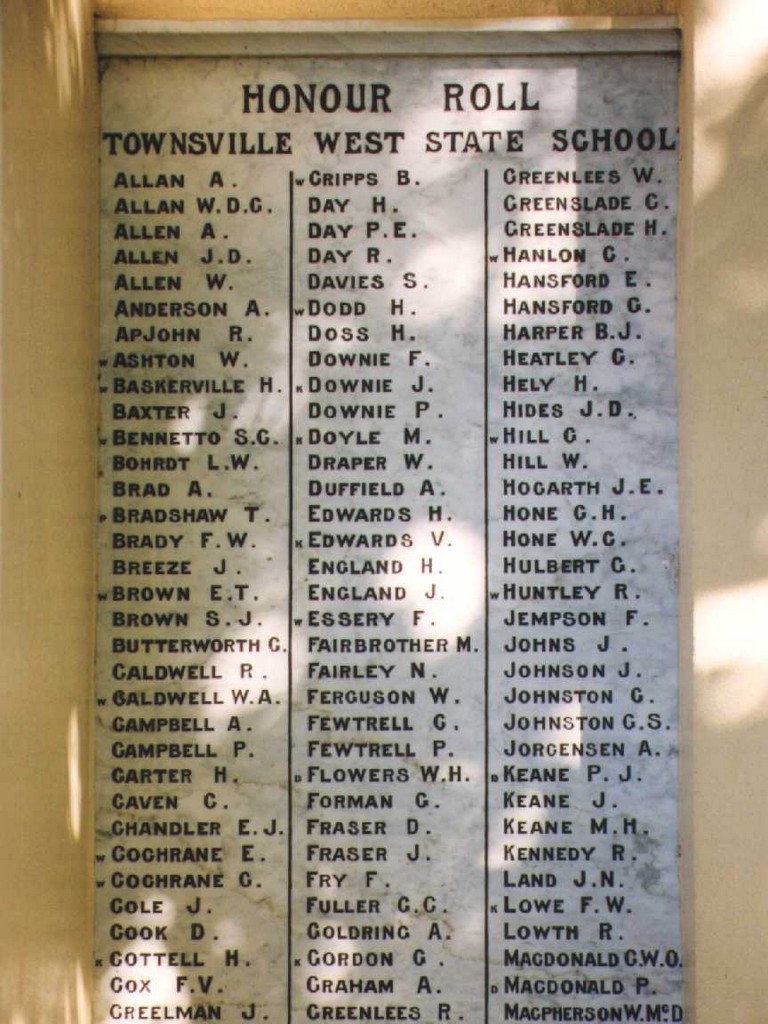 HONOUR ROLL
TOWNSVILLE WEST STATE SCHOOL
ALLAN A.
ALLAN W.D.C.
ALLEN A.
ALLEN J.D.
ALLEN W.
ANDERSON A.
APJOHN R.
W ASHTON W.
W BASKERVILLE H.
BAXTER J.
W BENNETTO S.C.
BOHRDT L.W.
BRAD A.
P BRADSHAW T.
BRADY F.W.
BREEZE J.
W BROWN E.T.
BROWN S.J.
BUTTERWORTH C.
CALDWELL R.
W CALDWELL W.A.
CAMPBELL A.
CAMPBELL P.
CARTER H.
CAVEN C.
CHANDLER E.J.
W COCHRANE E.
W COCHRANE G.
COLE J.
COOK D.
K COTTELL H.
COX F.V.
CREELMAN J.
W CRIPPS B.
DAY H.
DAY P.E.
DAY R.
DAVIES S.
W DODD H.
DOSS H.
DOWNIE F.
K DOWNIE J.
DOWNIE P.
K DOYLE M.
DRAPER W.
DUFFIELD A.
EDWARDS H.
K EDWARDS V.
ENGLAND H.
ENGLAND J.
W ESSERY F.
FAIRBROTHER M.
FAIRLEY N.
FERGUSON W.
FEWTRELL G.
FEWTRELL P.
D FLOWERS W.H.
FORMAN G.
FRASER D.
FRASER J.
FRY F.
FULLER C.C.
GOLDRING A.
K GORDON G.
GRAHAM A.
GREENLEES R.
GREENLEES W.
GREENSLADE C.
GREENSLADE H.
W HANLON G.
HANSFORD E.
HANSFORD G.
HARPER B.J.
HEATLEY G.
HELY H.
HIDES J.D.
W HILL G.
HILL W.
HOGARTH J.E.
HONE G.H.
HONE W.G.
HULBERT G.
W HUNTLEY R.
JEMPSON F.
JOHNS J.
JOHNSON J.
JOHNSTON G.
JOHNSTON G.S.
JORGENSEN A.
D KEANE P.J.
KEANE J.
KEANE M.H.
KENNEDY R.
LAND J.N.
K LOWE F.W.
LOWTH R.
MACDONALD G.W.O.
D MACDONALD P.
MACPHERSON W.McD